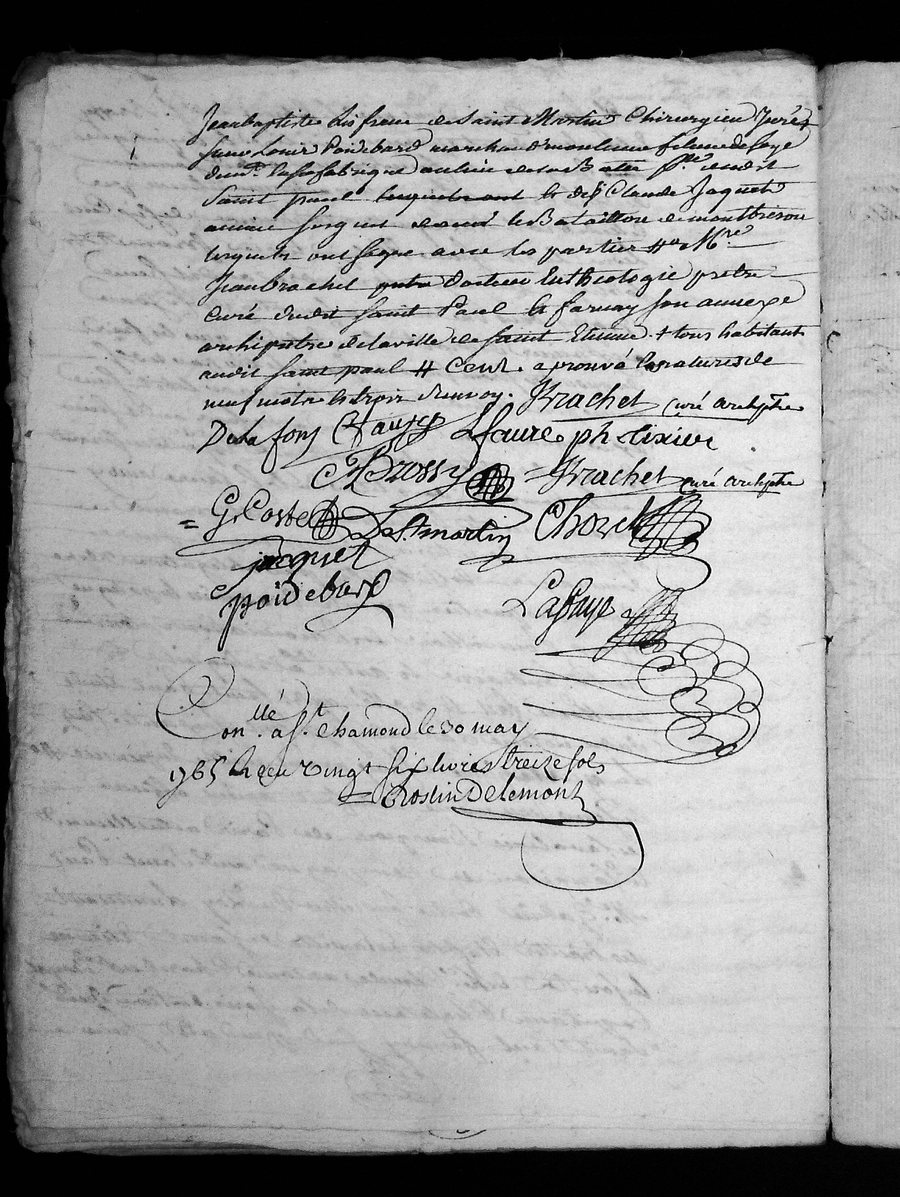 Jean baptiste dis franc de Saint Martin Chirurgien juré,
Sieur Louis Poidebard marchand moulinier fileur de soye
dud. sa fabrique au lieu de la Bater psse dudit
Saint paul et Sr Claude Jaquet
Sergent dans le Bataillon de montbrison
lesquels ont signé avec les parties # Mre
Jean brachet docteur En theologie pretre
Curé dudit Saint Paul Et farnay son annexe
archipretre de la ville de Saint Etienne + tous habitant
audit Saint paul # Cent. aprouvé la rature de
neuf mots et trois d'envoy. Brachet curé archiptre
Dela fons Chauze L faure ph tixier
C Brossy = Brachet curé archiptre
= G. Coste De St martin Chorel
jacquet
poidebard Lafaye
Con.llé a St. Chamond le 30 may
1765 Reçu vingt six livres treize sols
Rostin Delemont